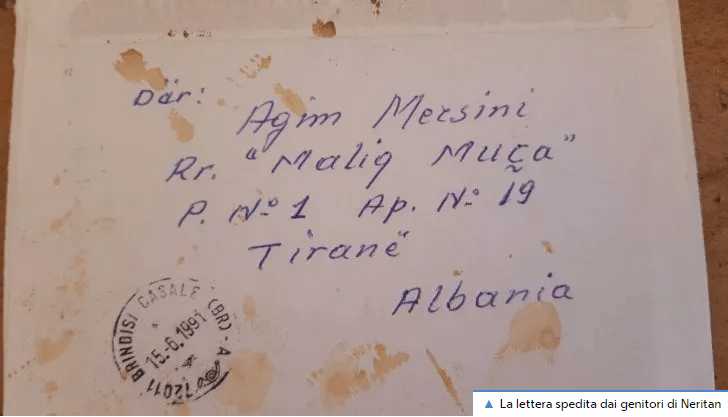 Dár:
Agim Mersini
Rr. "Maliq Muça"
P. Nº 1 Ap. Nº 19
Tiranë
Albania
BRINDISI CASALE (BR) - A
15-6.1991
72011
▲ La lettera spedita dai genitori di Neritan